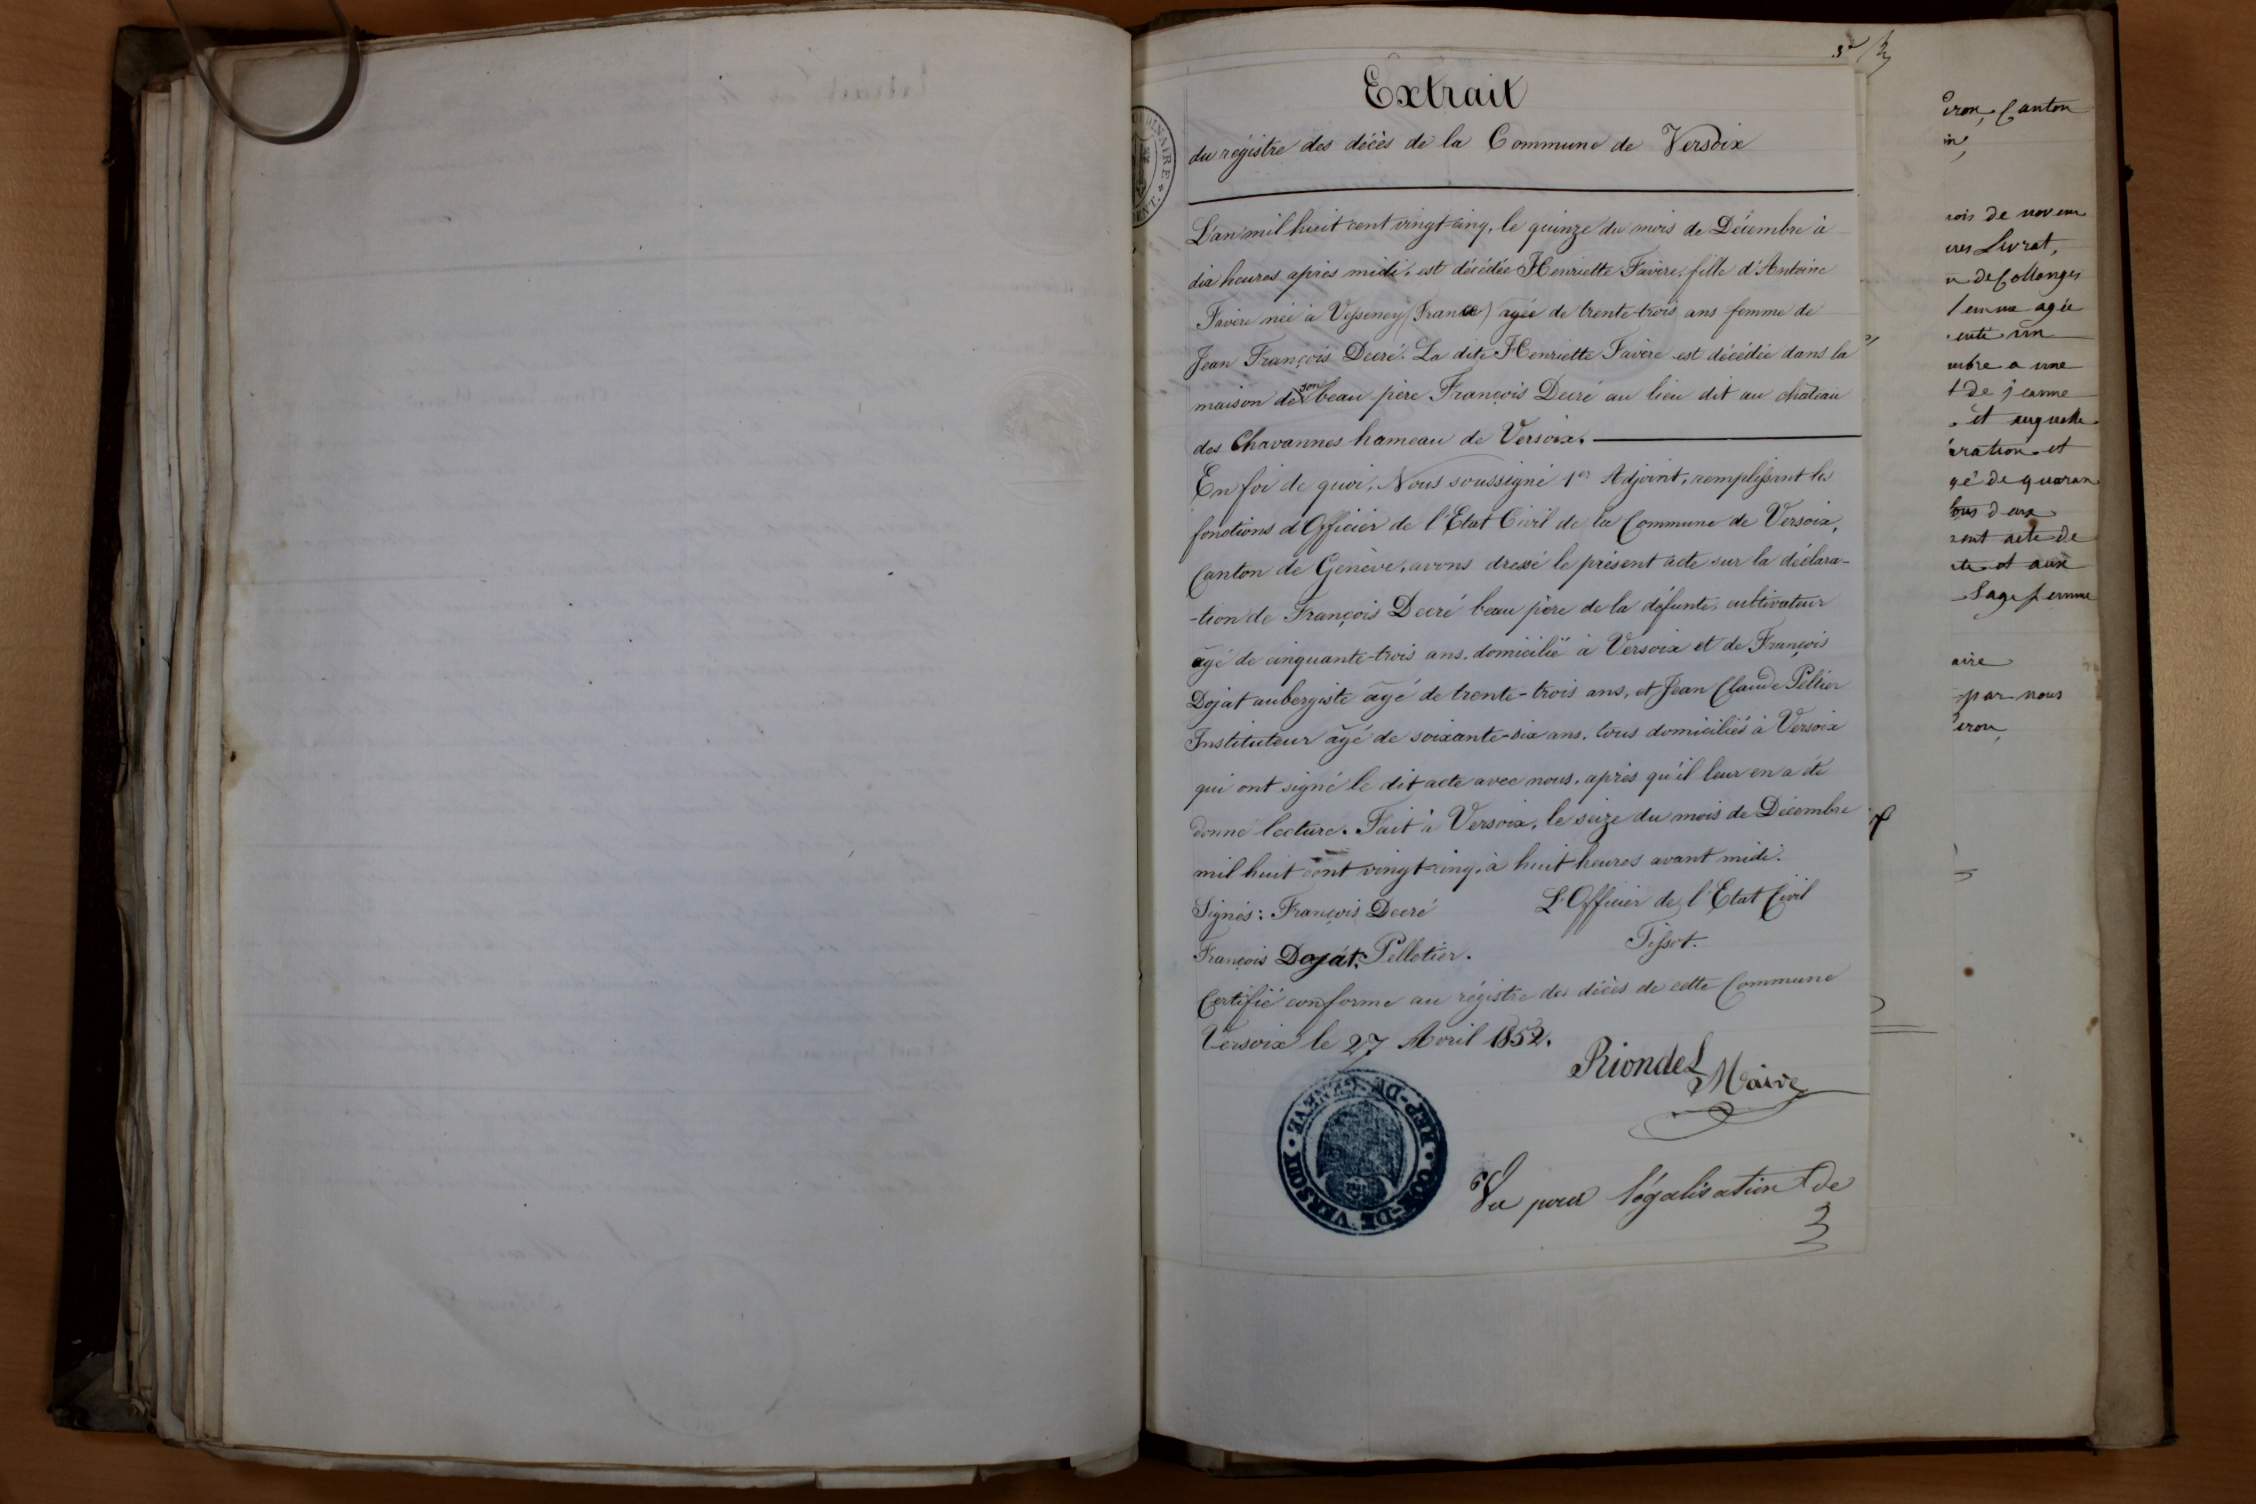 Extrait
du régistre des décès de la Commune de Versoix
L'an mil huit cent vingt-cinq, le quinze du mois de Décembre à
dix heures après midi, est décédée Henriette Favère, fille d'Antoine
Favère née à Vesseney (France) agée de trente-trois ans femme de
Jean François Decré. La dite Henriette Favère est décédée dans la
maison de son beau père François Decré au lieu dit au château
des Chavannes hameau de Versoix.
En foi de quoi, Nous soussigné 1er Adjoint, remplissant les
fonctions d'Officier de l'Etat Civil de la Commune de Versoix,
Canton de Genève, avons dressé le présent acte sur la déclara-
-tion de François Decré beau père de la défunte, cultivateur
agé de cinquante-trois ans, domicilié à Versoix et de François
Dojat aubergiste agé de trente-trois ans, et Jean Claude Peltier
Instituteur agé de soixante-six ans, tous domiciliés à Versoix
qui ont signé le dit acte avec nous, après qu'il leur en a été
donné lecture. Fait à Versoix, le seize du mois de Décembre
mil huit cent vingt-cinq, à huit heures avant midi.
Signés: François Decré L'Officier de l'Etat Civil
François Dojat, Pelletier. Tissot.
Certifié conforme au régistre des décès de cette Commune
Versoix le 27 Avril 1852.
Riondel
Maire
REP. COM. DE VERSOIX DE GENEVE
Vu pour légalisation de
iron, Canton
in,
rois de novem
cres Livrat,
n de Collonges
femme agée
ente un
mbre a une
t de jeanne
et auguste
aration et
gé de quaran
tous deux
sent acte de
ete et aux
Sage femme
aire
par nous
iron,